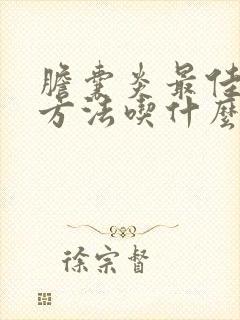 膽囊炎最佳
方法喫什麽
徐宗督